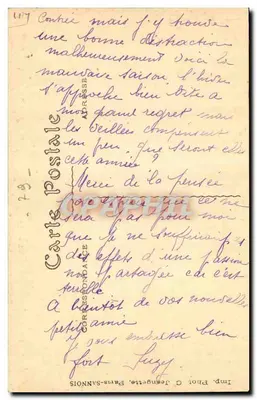 contrée mais j'y trouve
une bonne distraction
malheureusement voici la
mauvaise saison l'hiver
s'approche bien vite à
mon grand regret mais
les veillées compensent
un peu. que seront elles
cette année ?
Merci de la pensée
ce ne
sera pas pour moi
que je ne souffrirai pas
des effets d'une passion
non partagée car c'est
terrible
A bientôt de vos nouvelles
petite amie
je vous embrasse bien
fort Suzy
Carte Postale
CORRESPONDANCE
ADRESSE
79
Imp. Phot. C. Jeannette, Paris-SANNOIS